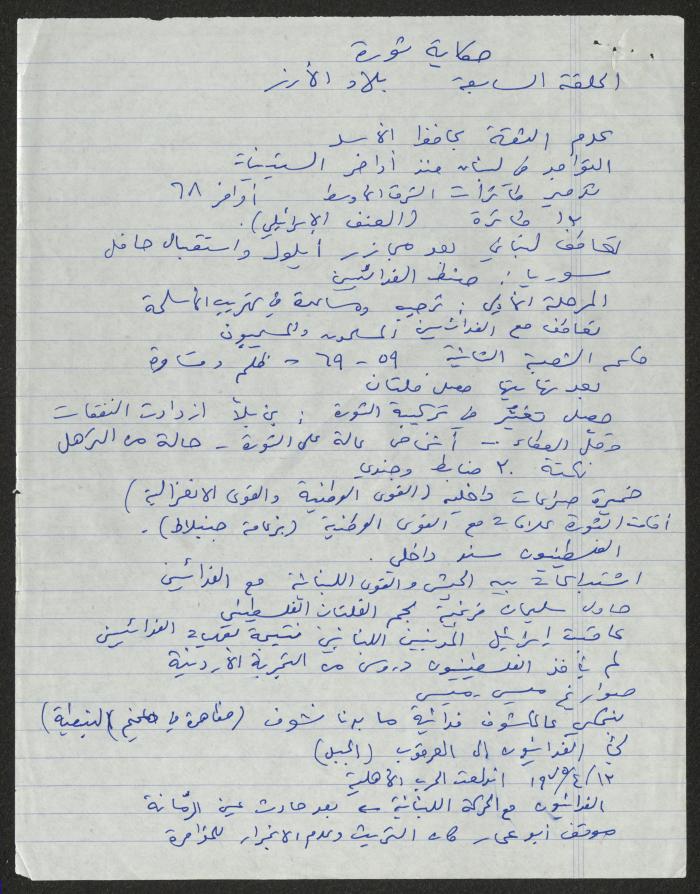 حكاية ثورة
الحلقة السابعة بلاد الأرز
عدم الثقة بحافظ الأسد
التواجد في لبنان منذ أواخر الستينات
تدمير طائرات الشرق الأوسط أواخر ٦٨
١٣ طائرة (العنف الإسرائيلي).
تعاطف لبناني بعد مجازر أيلول واستقبال حافل
سوريا: ضبط الفدائيين
المرحلة الأولى: ترحيب ومساعدة في تهريب الأسلحة
تعاطف مع الفدائيين المسلمون والمسيحيون
الشعبة الثانية ٥٩ - ٦٩ ظلم وقساوة
بعد نهايتها حصل فلتان
حصل تغيّر في تركيبة الثورة: ازدادت النفقات
وقلّ العطاء - أشخاص عالة على الثورة - حالة من الترهل
نكتة ٢٠ ضابط وجندي
خميرة صراعات داخلية (القوى الوطنية والقوى الانعزالية)
أقامت الثورة علاقات مع القوى الوطنية (بزعامة جنبلاط).
الفلسطينيون سند داخلي.
اشتباكات بين الجيش والقوى اللبنانية مع الفدائيين
حاول سليمان فرنجية لجم الفلتان الفلسطيني
عاقبت إسرائيل المدنيين اللبنانيين نتيجة الفدائيين
لم يأخذ الفلسطينيون دروس من التجربة الأردنية
صواريخ ميسي ميسي
عالمكشوف فدائية ما بدنا نشوف (مظاهرة في النبطية)
الفدائيون إلى العرقوب (الجبل)
١٣/٤/١٩٧٥ اندلعت الحرب الأهلية
الفدائيون مع الحركة اللبنانية بعد حادث عين الرمّانة
موقف أبو عمار كان التريث وعدم الانجرار للمؤامرة